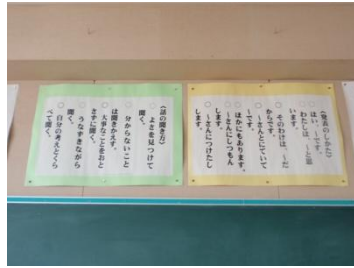 〈発表のしかた〉
○ はい、〜です。
○ わたしは、〜と思
います。
○ そのわけは、〜だ
からです。
○ 〜さんとにていて
〜です。
○ ほかにもあります。
○ 〜さんにしつもん
します。
○ 〜さんにつけたし
します。
〈話の聞き方〉
○ よさを見つけて
聞く。
○ 分からないこと
は聞きかえす。
○ 大事なことをおと
さずに聞く。
○ うなずきながら
聞く。
○ 自分の考えとくら
べて聞く。